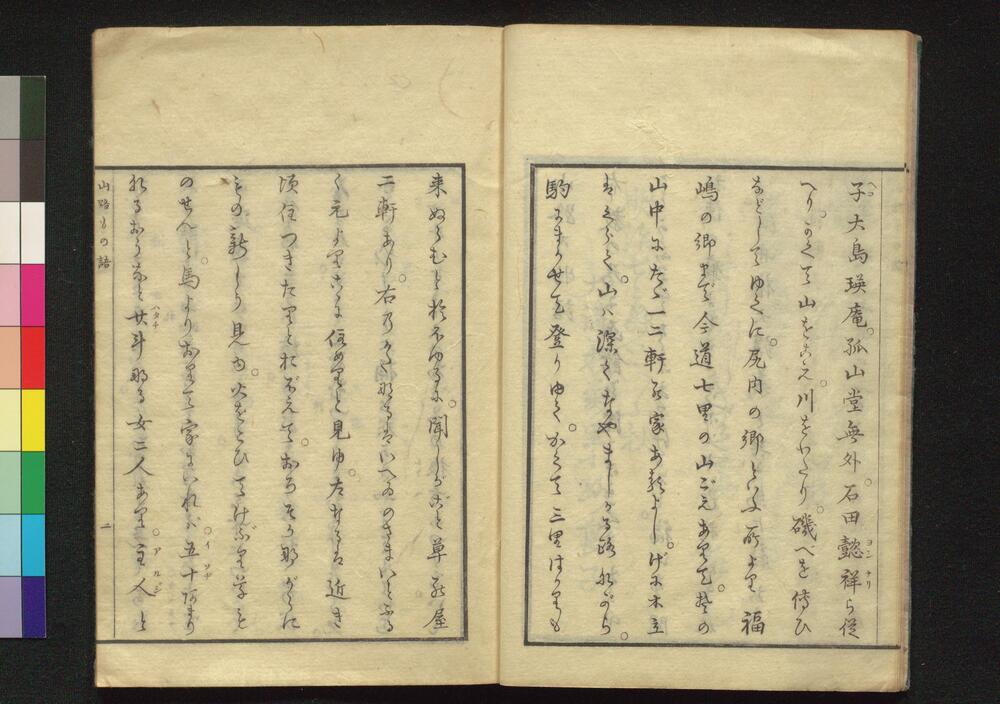 子大島瑛庵。孤山堂無外。石田懿祥ら従
へり。かくて山をこえ川をわたり。磯べを傳ひ
などしてゆくに。尻内の郷といふ所より福
嶋の郷まで今道七里の山ごえありて。其の
山中にたゞ一二軒の家あるよし。げに木立
はくらく。山は深くなやましかる路ながら。
駒にまかせて登りゆく。かくて三里ばかりも
来ぬらむとおもふに。聞しがごと草の屋
二軒あり。右のかたなるはいへゐのさまいとふる
く元よりこゝに住めりと見ゆ。左なるは近き
頃住つきたりとおぼえて。
その新しう見ゆ。火をこひてけぶり草も
のせんと。馬よりおりて家にいれば。五十あまり
なるおうなと廿斗なる女二人あり。主人と
山路もの語
二